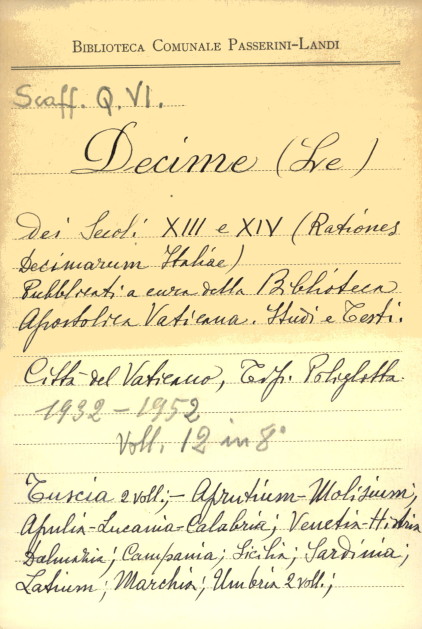 BIBLIOTECA COMUNALE PASSERINI-LANDI
Scaff. Q. VI.
Decime (Le)
dei Secoli XIII e XIV (Rationes
Decimarum Italiae)
Pubblicati a cura della Biblioteca
Apostolica Vaticana. Studi e Testi.
Città del Vaticano, Tip. Poliglotta.
1932-1952
Voll. 12 in 8°
Tuscia 2 voll; - Aprutium-Molisium;
Apulia-Lucania-Calabria; Venetia-Histria
Dalmatia; Campania; Sicilia; Sardinia;
Latium; Marchia; Umbria 2 voll.;